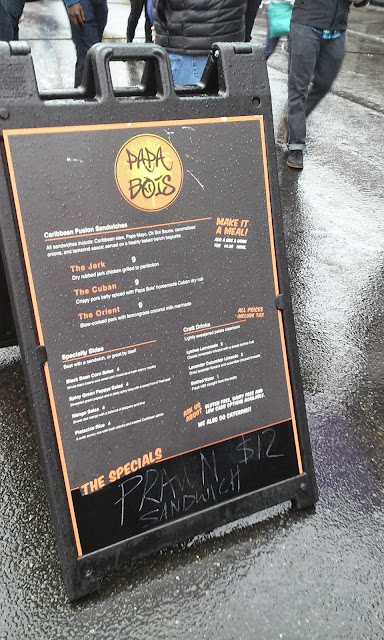 PAPA
BOIS
Caribbean Fusion Sandwiches
All sandwiches include: Caribbean slaw, Papa Mayo, Oh Boi Sauce, caramelized
onions, and tamarind sauce; served on a freshly baked french baguette
MAKE IT
A MEAL!
ADD A SIDE & DRINK
FOR
The Jerk 9
Dry rubbed jerk chicken grilled to perfection
The Cuban 9
Crispy pork belly spiced with Papa Bois' homemade Cuban dry rub
The Orient 9
Slow-cooked pork with lemongrass coconut milk marinade
ALL PRICES
INCLUDE TAX
Specialty Sides
Best with a sandwich, or great by itself
Black Bean Corn Salad 4
Spicy Green Papaya Salad 4
Mango Salsa 4
Pistachio Rice 4
Craft Drinks
Lychee Lemonade 3
Lavender Cucumber Limeade 3
Bottled Water
ASK US
ABOUT
GLUTEN FREE, DAIRY FREE AND
LOW CARB OPTIONS AVAILABLE.
WE ALSO DO CATERING!
THE SPECIALS
PRAWN $12
SANDWICH